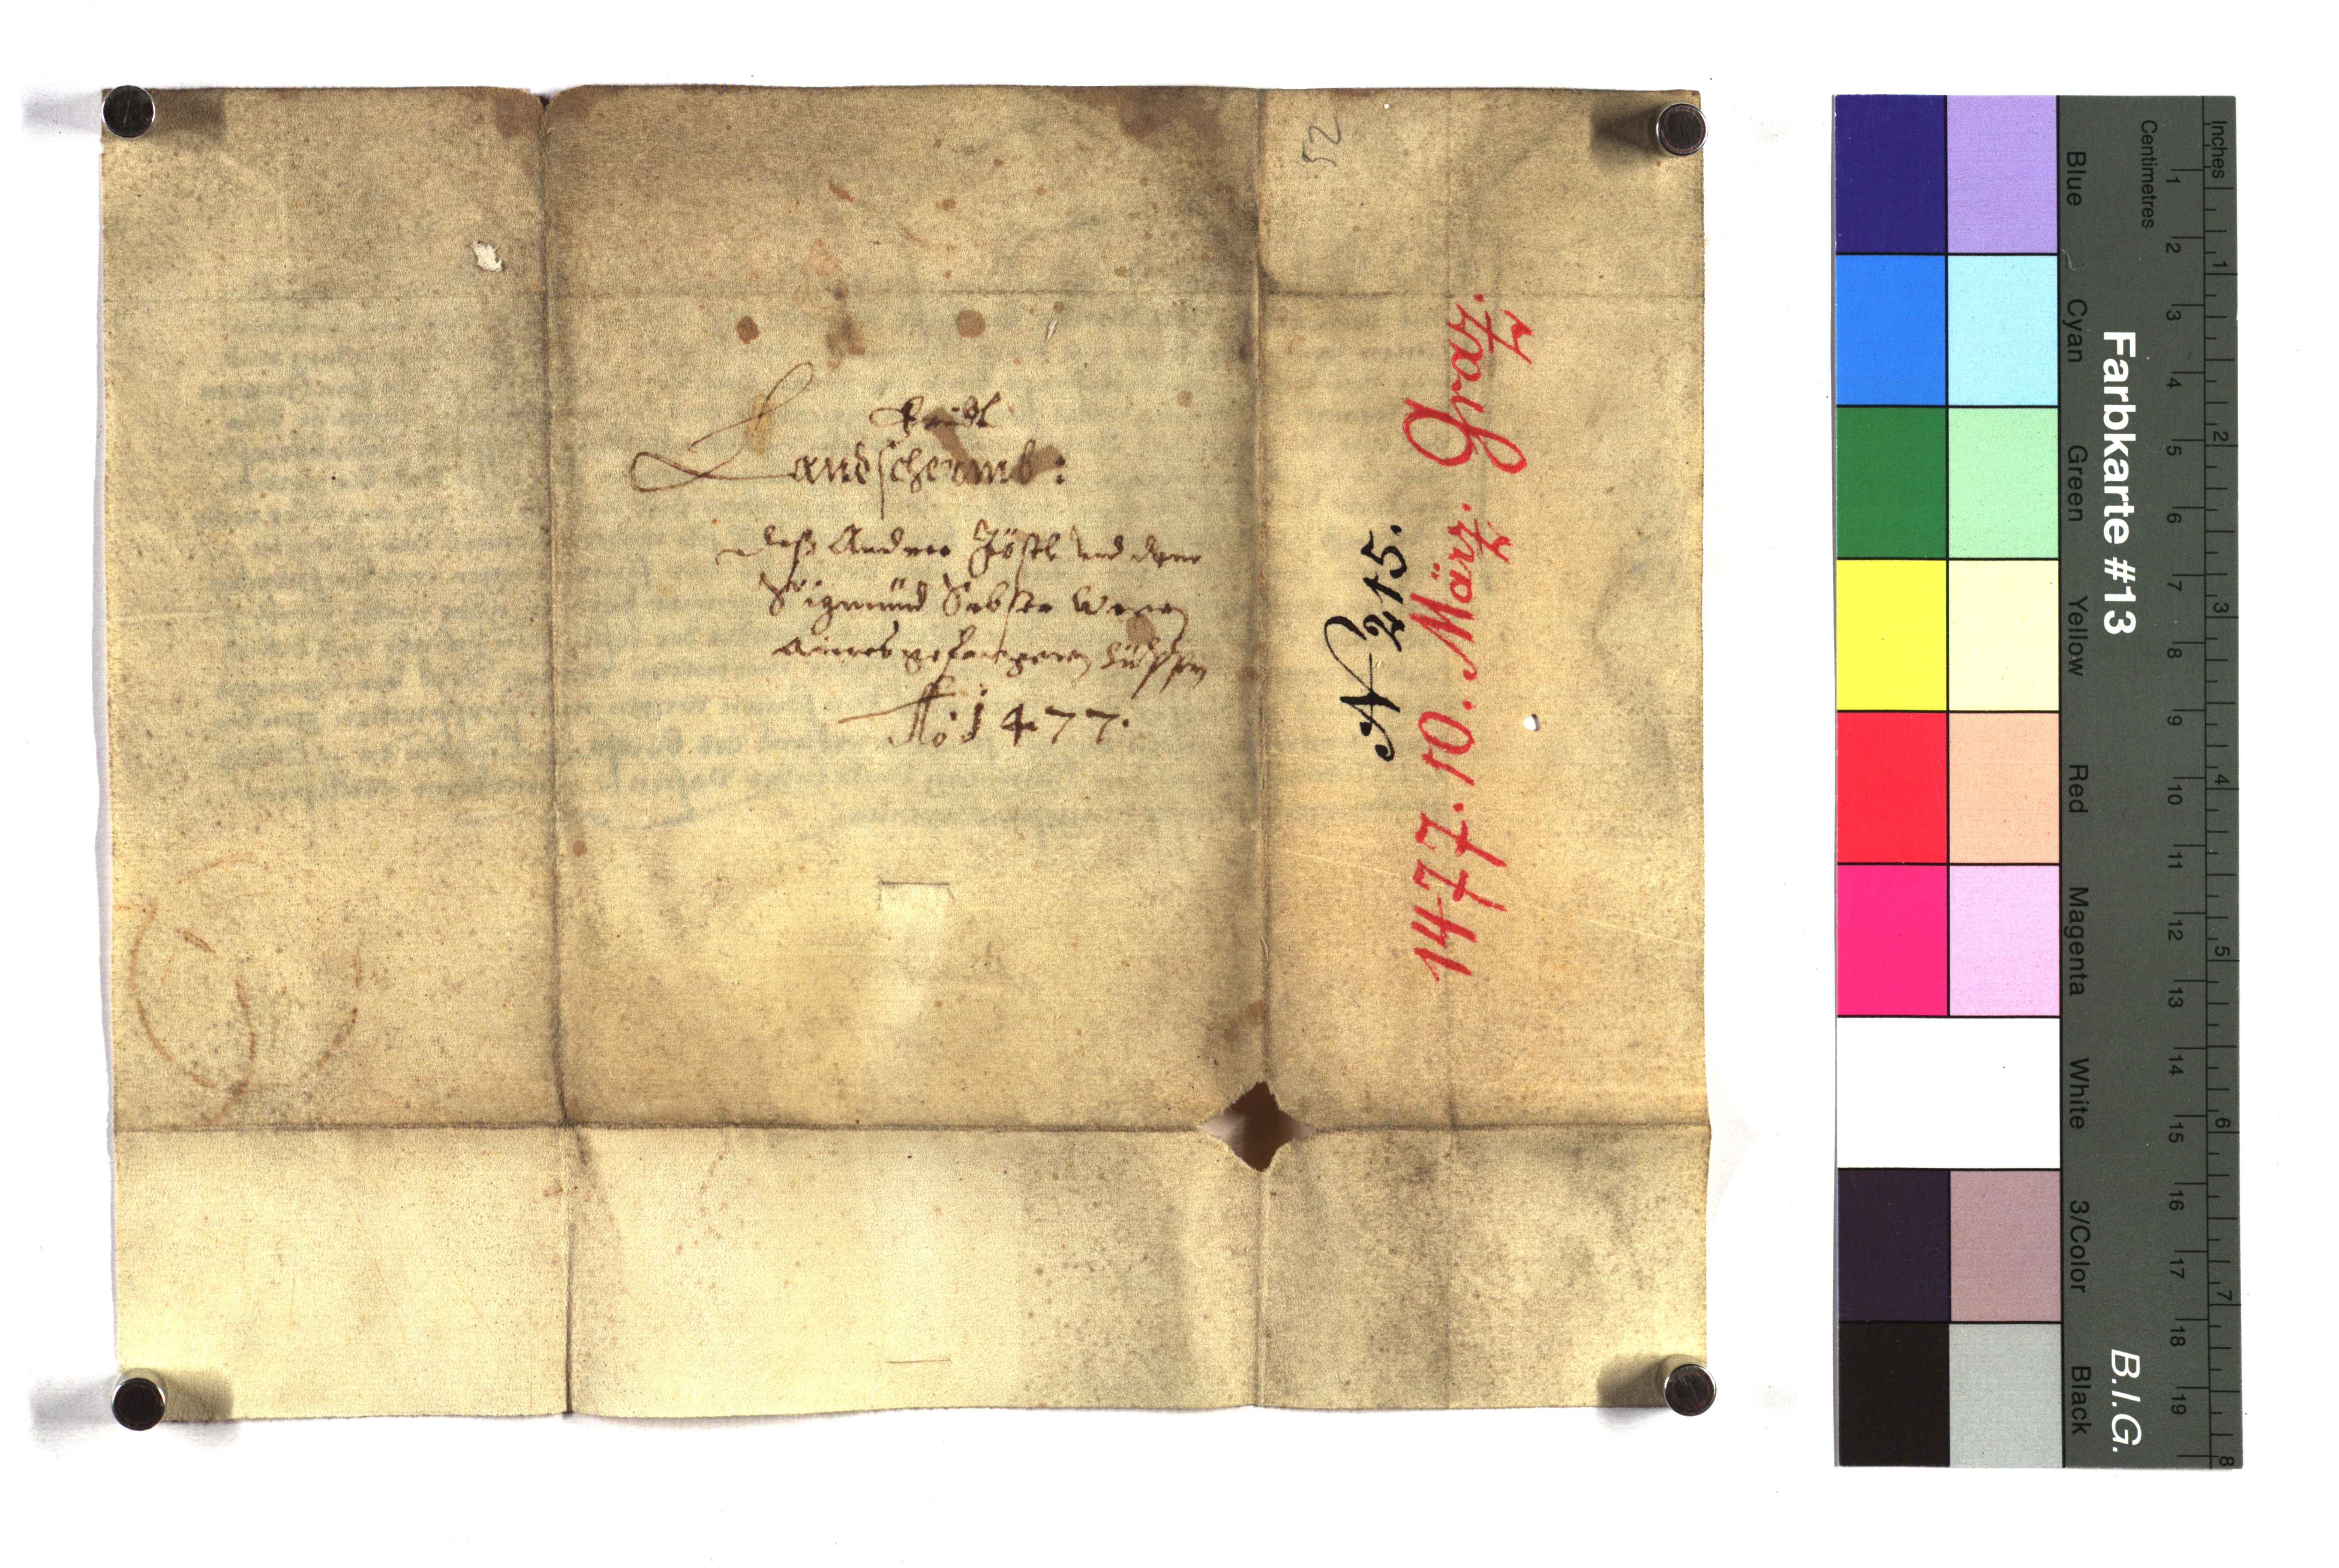 Landscheomb:
deß Andree Jöstl und dem
Sigmund Wegen
aines gefangenen
Ao: 1477.
52
N 215.
1477. 10. März. Gratz.
Inches
Centimetres
1 2 3 4 5 6 7 8 9 10 11 12 13 14 15 16 17 18 19
1 2 3 4 5 6 7 8
Blue Cyan Green Yellow Red Magenta White 3/Color Black
Farbkarte #13 B.I.G.